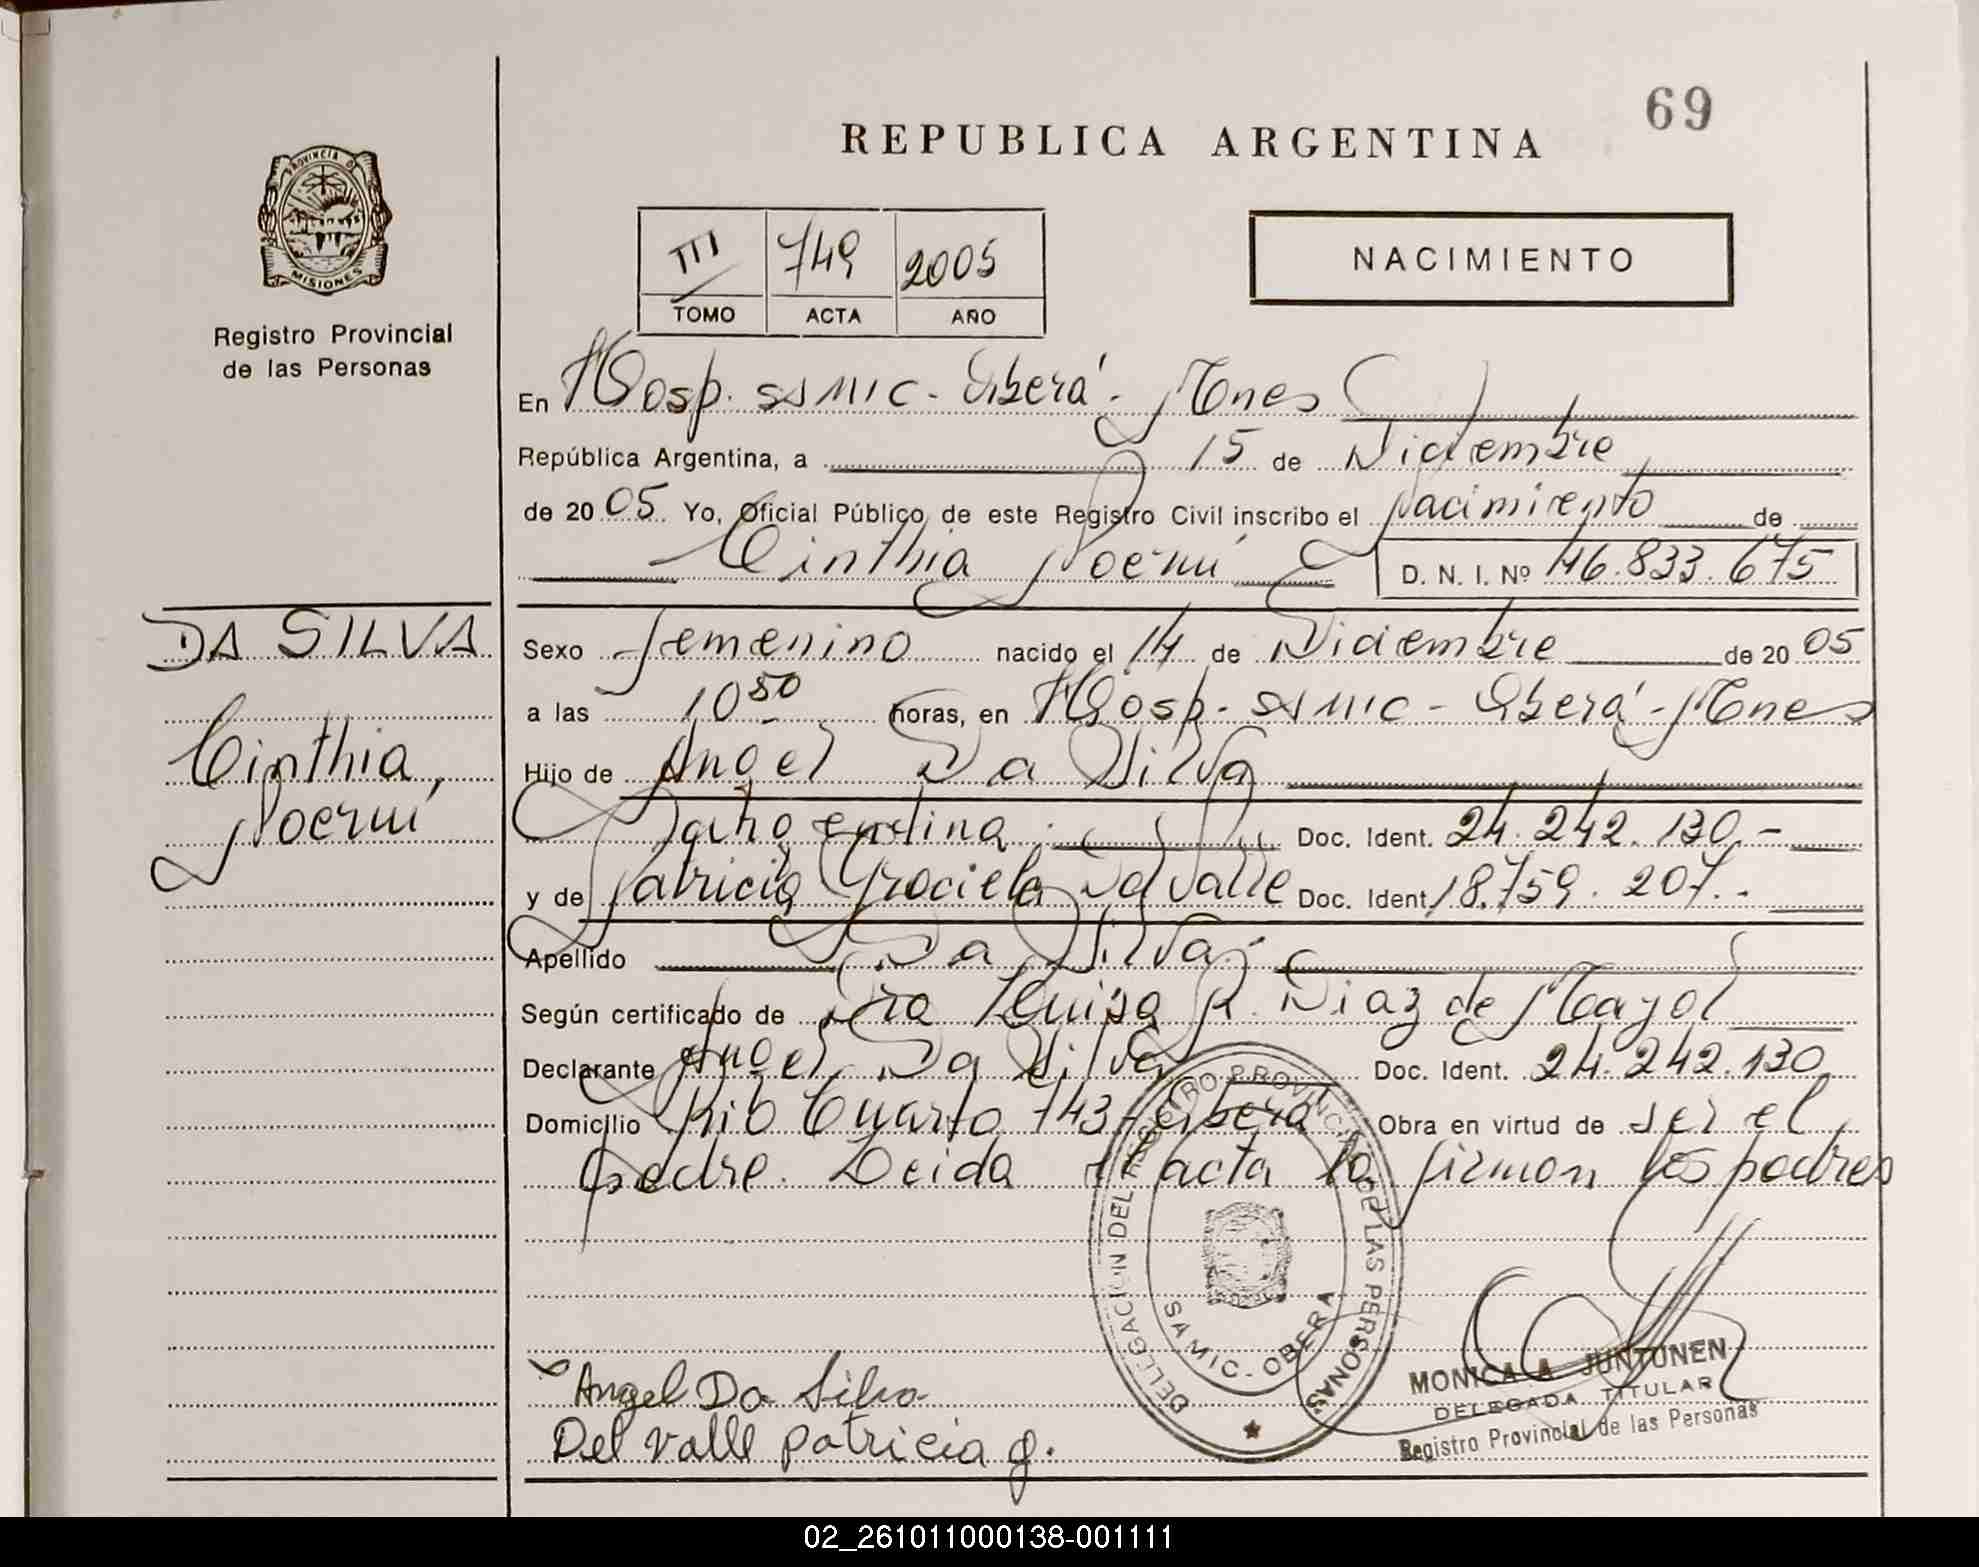 69
REPUBLICA ARGENTINA
PROVINCIA DE
MISIONES
Registro Provincial
de las Personas
III 749 2005
TOMO ACTA AÑO
NACIMIENTO
En Hosp. SAMIC - Oberá - Mnes
República Argentina, a 15 de Diciembre
de 20 05 Yo, Oficial Público de este Registro Civil inscribo el Nacimiento de
Cinthia Noemí D. N. I. Nº 46.833.675
DA SILVA
Cinthia
Noemí
Sexo femenino nacido el 14 de Diciembre de 20 05
a las 10 50 horas, en Hosp. SAMIC - Oberá - Mnes
Hijo de Angel Da Silva
Argentina Doc. Ident. 24.242.130.-
y de Patricia Graciela Del Valle Doc. Ident. 18.759.207.-
Apellido Da Silva.-
Según certificado de Dra Luisa R. Diaz de Mayol
Declarante Angel Da Silva Doc. Ident. 24.242.130
Domicilio Río Cuarto 743 - Oberá Obra en virtud de ser el
padre. Leida el acta la firman los padres
DELEGACION DEL REGISTRO PROVINCIAL DE LAS PERSONAS
SAMIC - OBERA
Angel Da Silva
Del valle patricia g.
MONICA A JUNTUNEN
DELEGADA TITULAR
Registro Provincial de las Personas
02_261011000138-001111